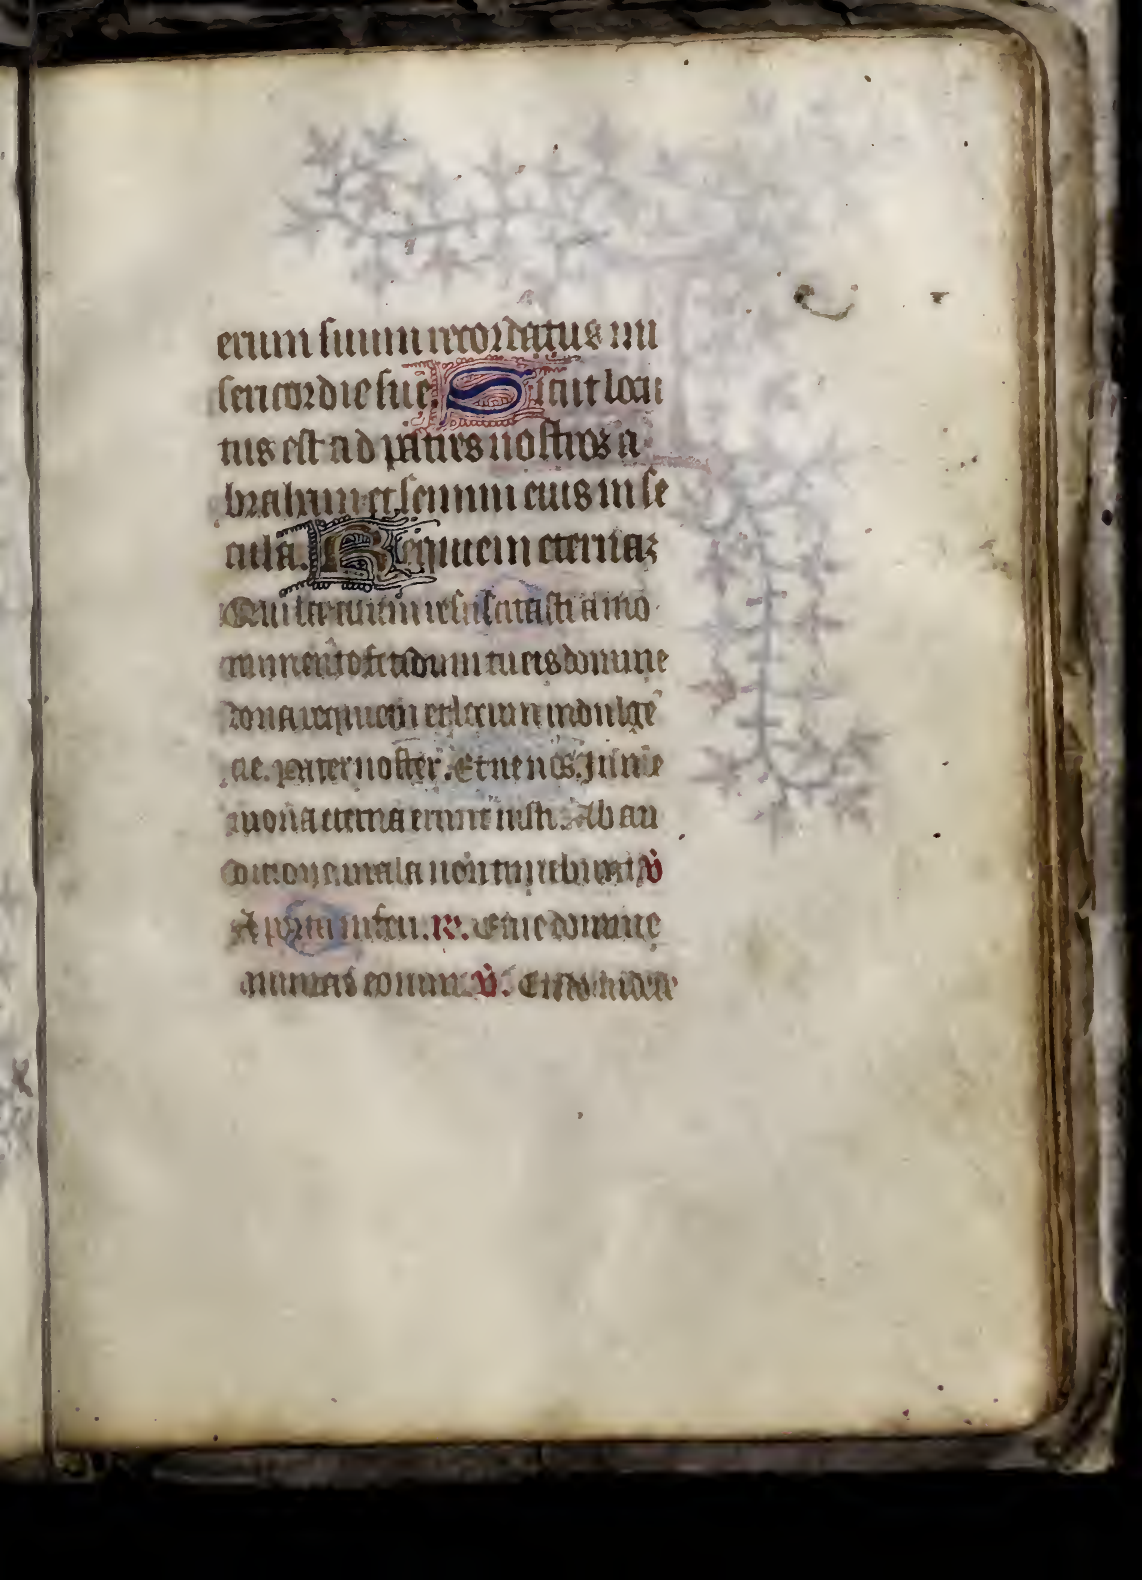 erum suum recordatus mi
sericordie sue. Sicut locu
tus est ad patres nostros a
braham et semini eius in se
cula. Requiem eternaz
Qui lazarum resuscitasti a mo
numento fetidum tu eis domine
dona requiem et locum indulge
cie. pater noster. Et ne nos. In me
moria eterna erunt iusti. Ab au
dicione mala non timebunt v̉
A porta inferi. R̃. Erue domine
animas eorum. v̉. Credo videre